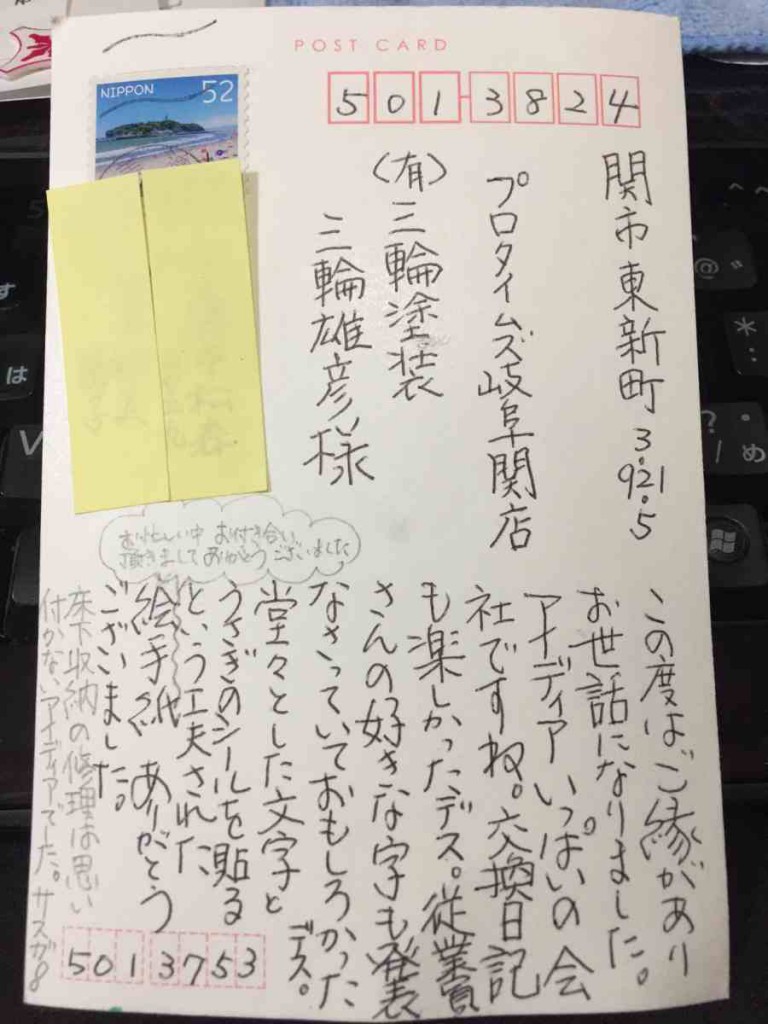 POST CARD
NIPPON 52
501-3824
関市東新町3.921.5
プロタイムズ岐阜関店
(有)三輪塗装
三輪雄彦様
お忙しい中 お付き合い
頂きまして ありがとうございました
この度はご縁があり
お世話になりました。
アイディア いっぱいの会
社ですね。交換日記
も楽しかったデス。従業員
さんの好きな字も発表
なさっていておもしろかった
デス。
堂々とした文字と
うさぎのシールを貼る
という工夫された
絵手紙 ありがとう
ございました。
床下収納の修理は思い
付かないアイディアでした。サスガ8
5013753